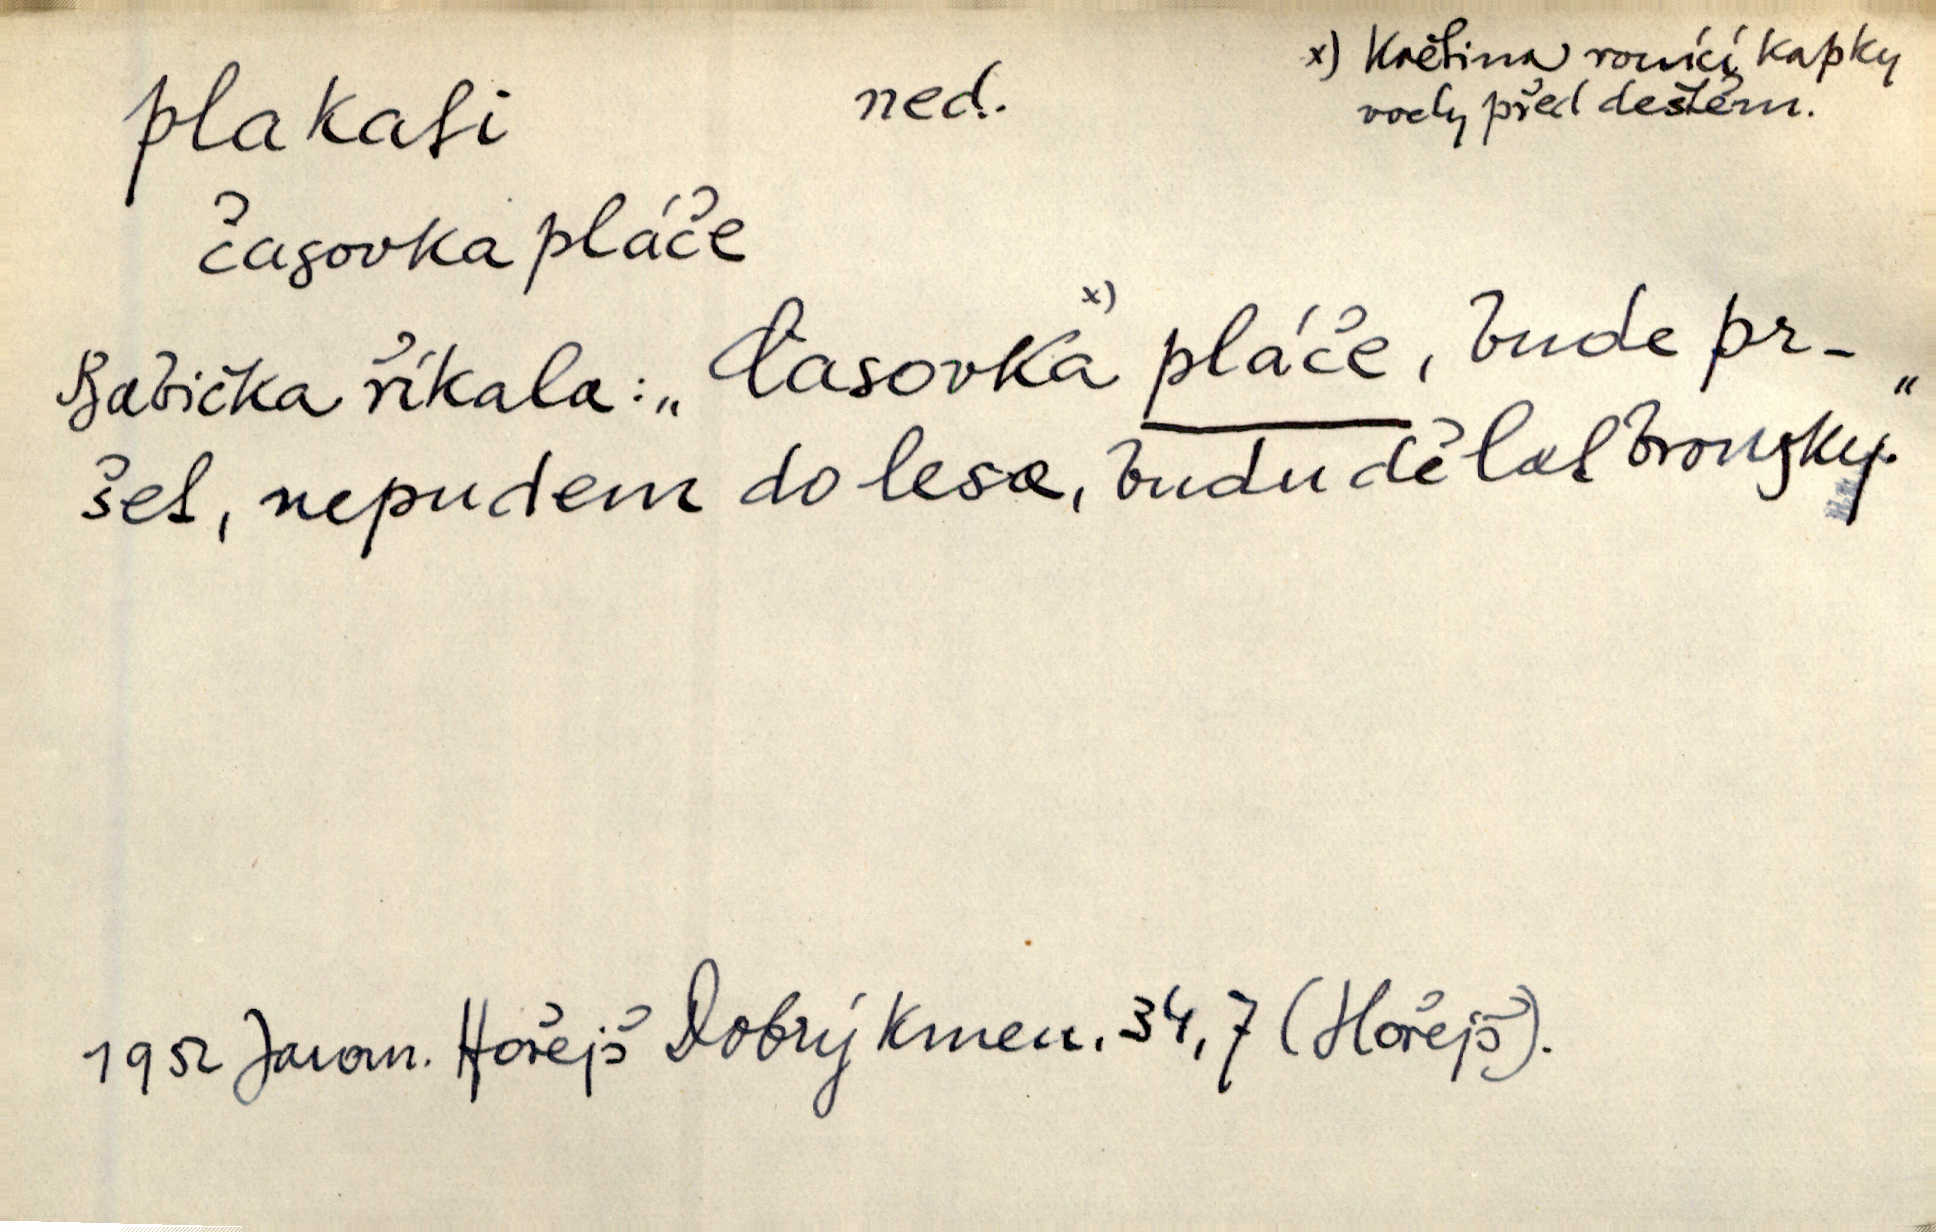 plakati ned. x) Květina ronící kapky
vody před deštěm.
časovka pláče
Babička říkala: „Časovka x) pláče, bude pr-
šet, nepudem do lesa, budu dělat brousky."
1952 Jarom. Hořejš Dobrý kmen. 34,7 (Hořejš).